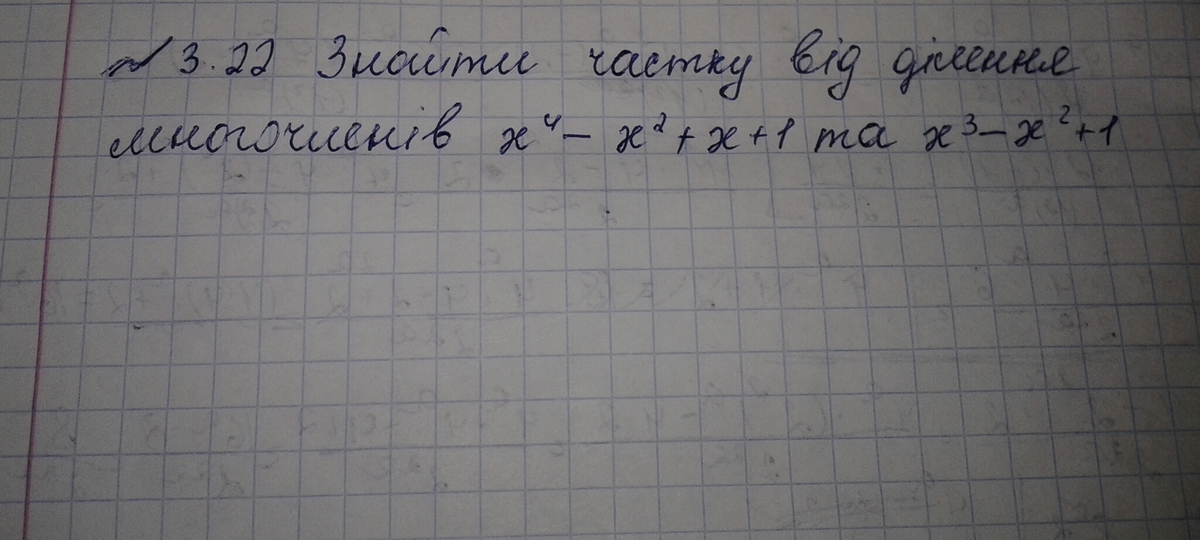 № 3.22 Знайти частку від ділення
многочленів x⁴ - x² + x + 1 та x³ - x² + 1